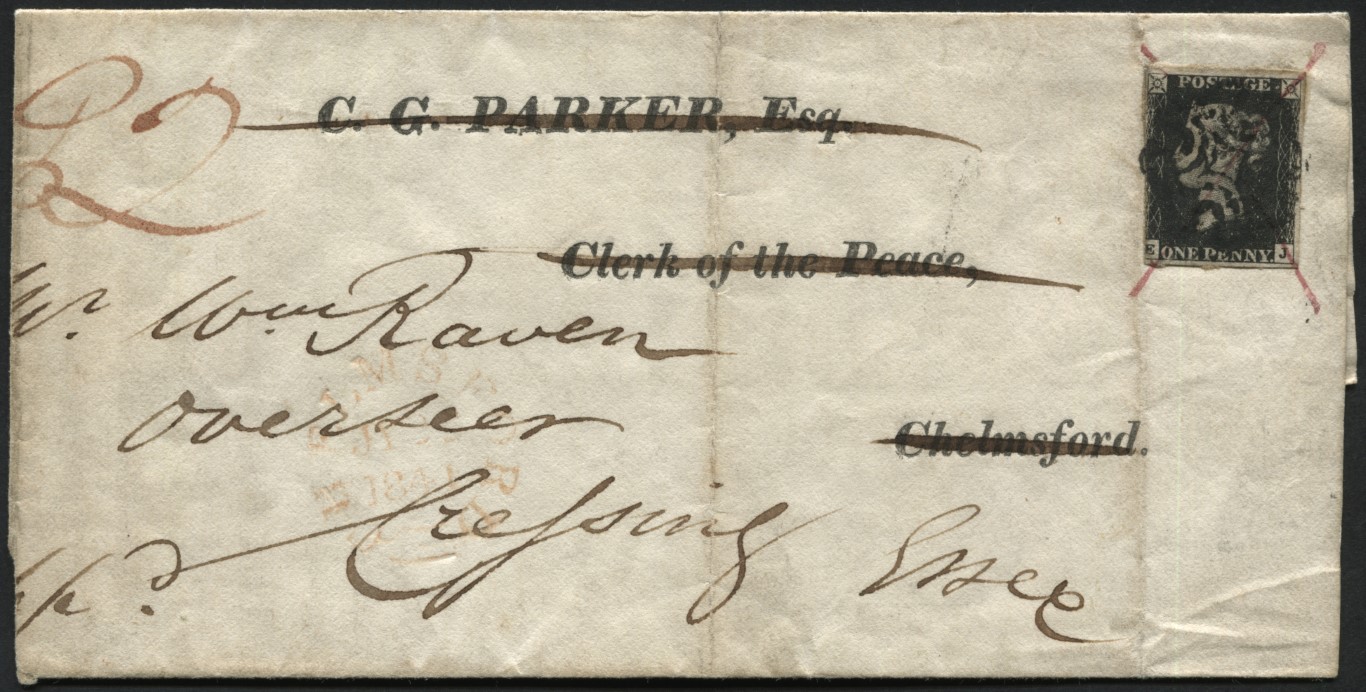 POSTAGE
C. G. PARKER, Esq.
E ONE PENNY J
Clerk of the Peace,
Mr. Wm Raven
Overseer
Chelmsford.
1841
Creſsing Essex